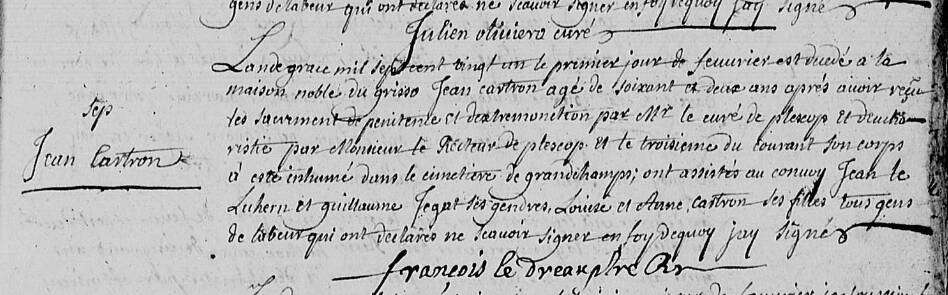 gens de labeur qui ont declarés ne scavoir signer en foy dequoy jay signé
Julien oliviero curé
Lan de grace mil sept cent vingt un le premier jour de feuvrier est decedé a la
maison noble du grisso Jean castron agé de soixant et deux ans aprés avoir reçu
les sacrement de penitence et dextremonction par Mr. le curé de plescop et deucha
ristie par Monsieur le Recteur de plescop et le troisieme du courant son corps
sep
Jean Castron
a esté inhumé dans le cimetiere de grandchamps; ont assistés au convoy Jean le
Luhern et guillaume Jegat ses gendres, Louise et Anne castron ses filles tous gens
de labeur qui ont declarés ne scavoir signer en foy dequoy jay signé
françois le dreau ptre